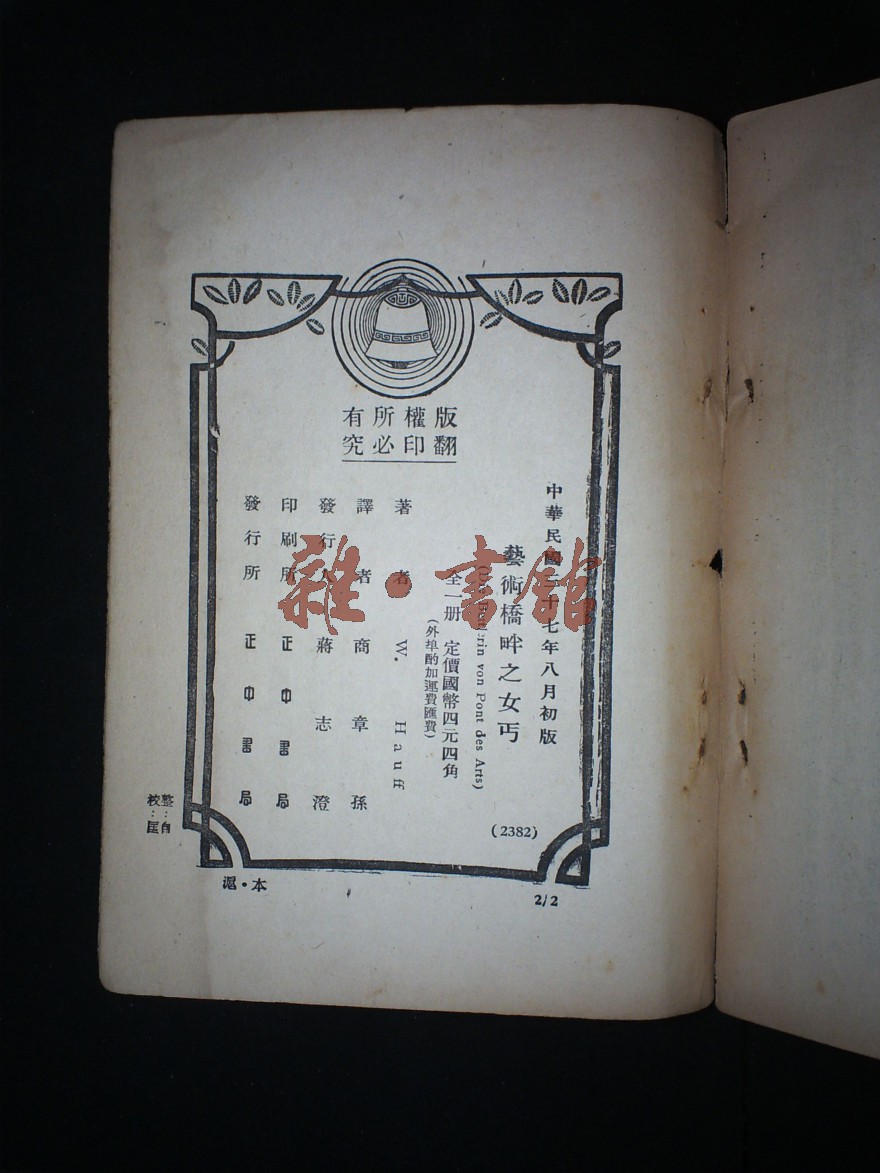 版權所有
翻印必究
中華民國十七年八月初版
藝術橋畔之女丐
von Pont des Arts)
(2382)
全一册 定價國幣四元四角
(外埠酌加運費匯費)
著者 W. Hauff
譯者 商章孫
發行人 蔣志澄
印刷所 正中書局
發行所 正中書局
整：自
校：匡
滬・本
2/2
雜・書館